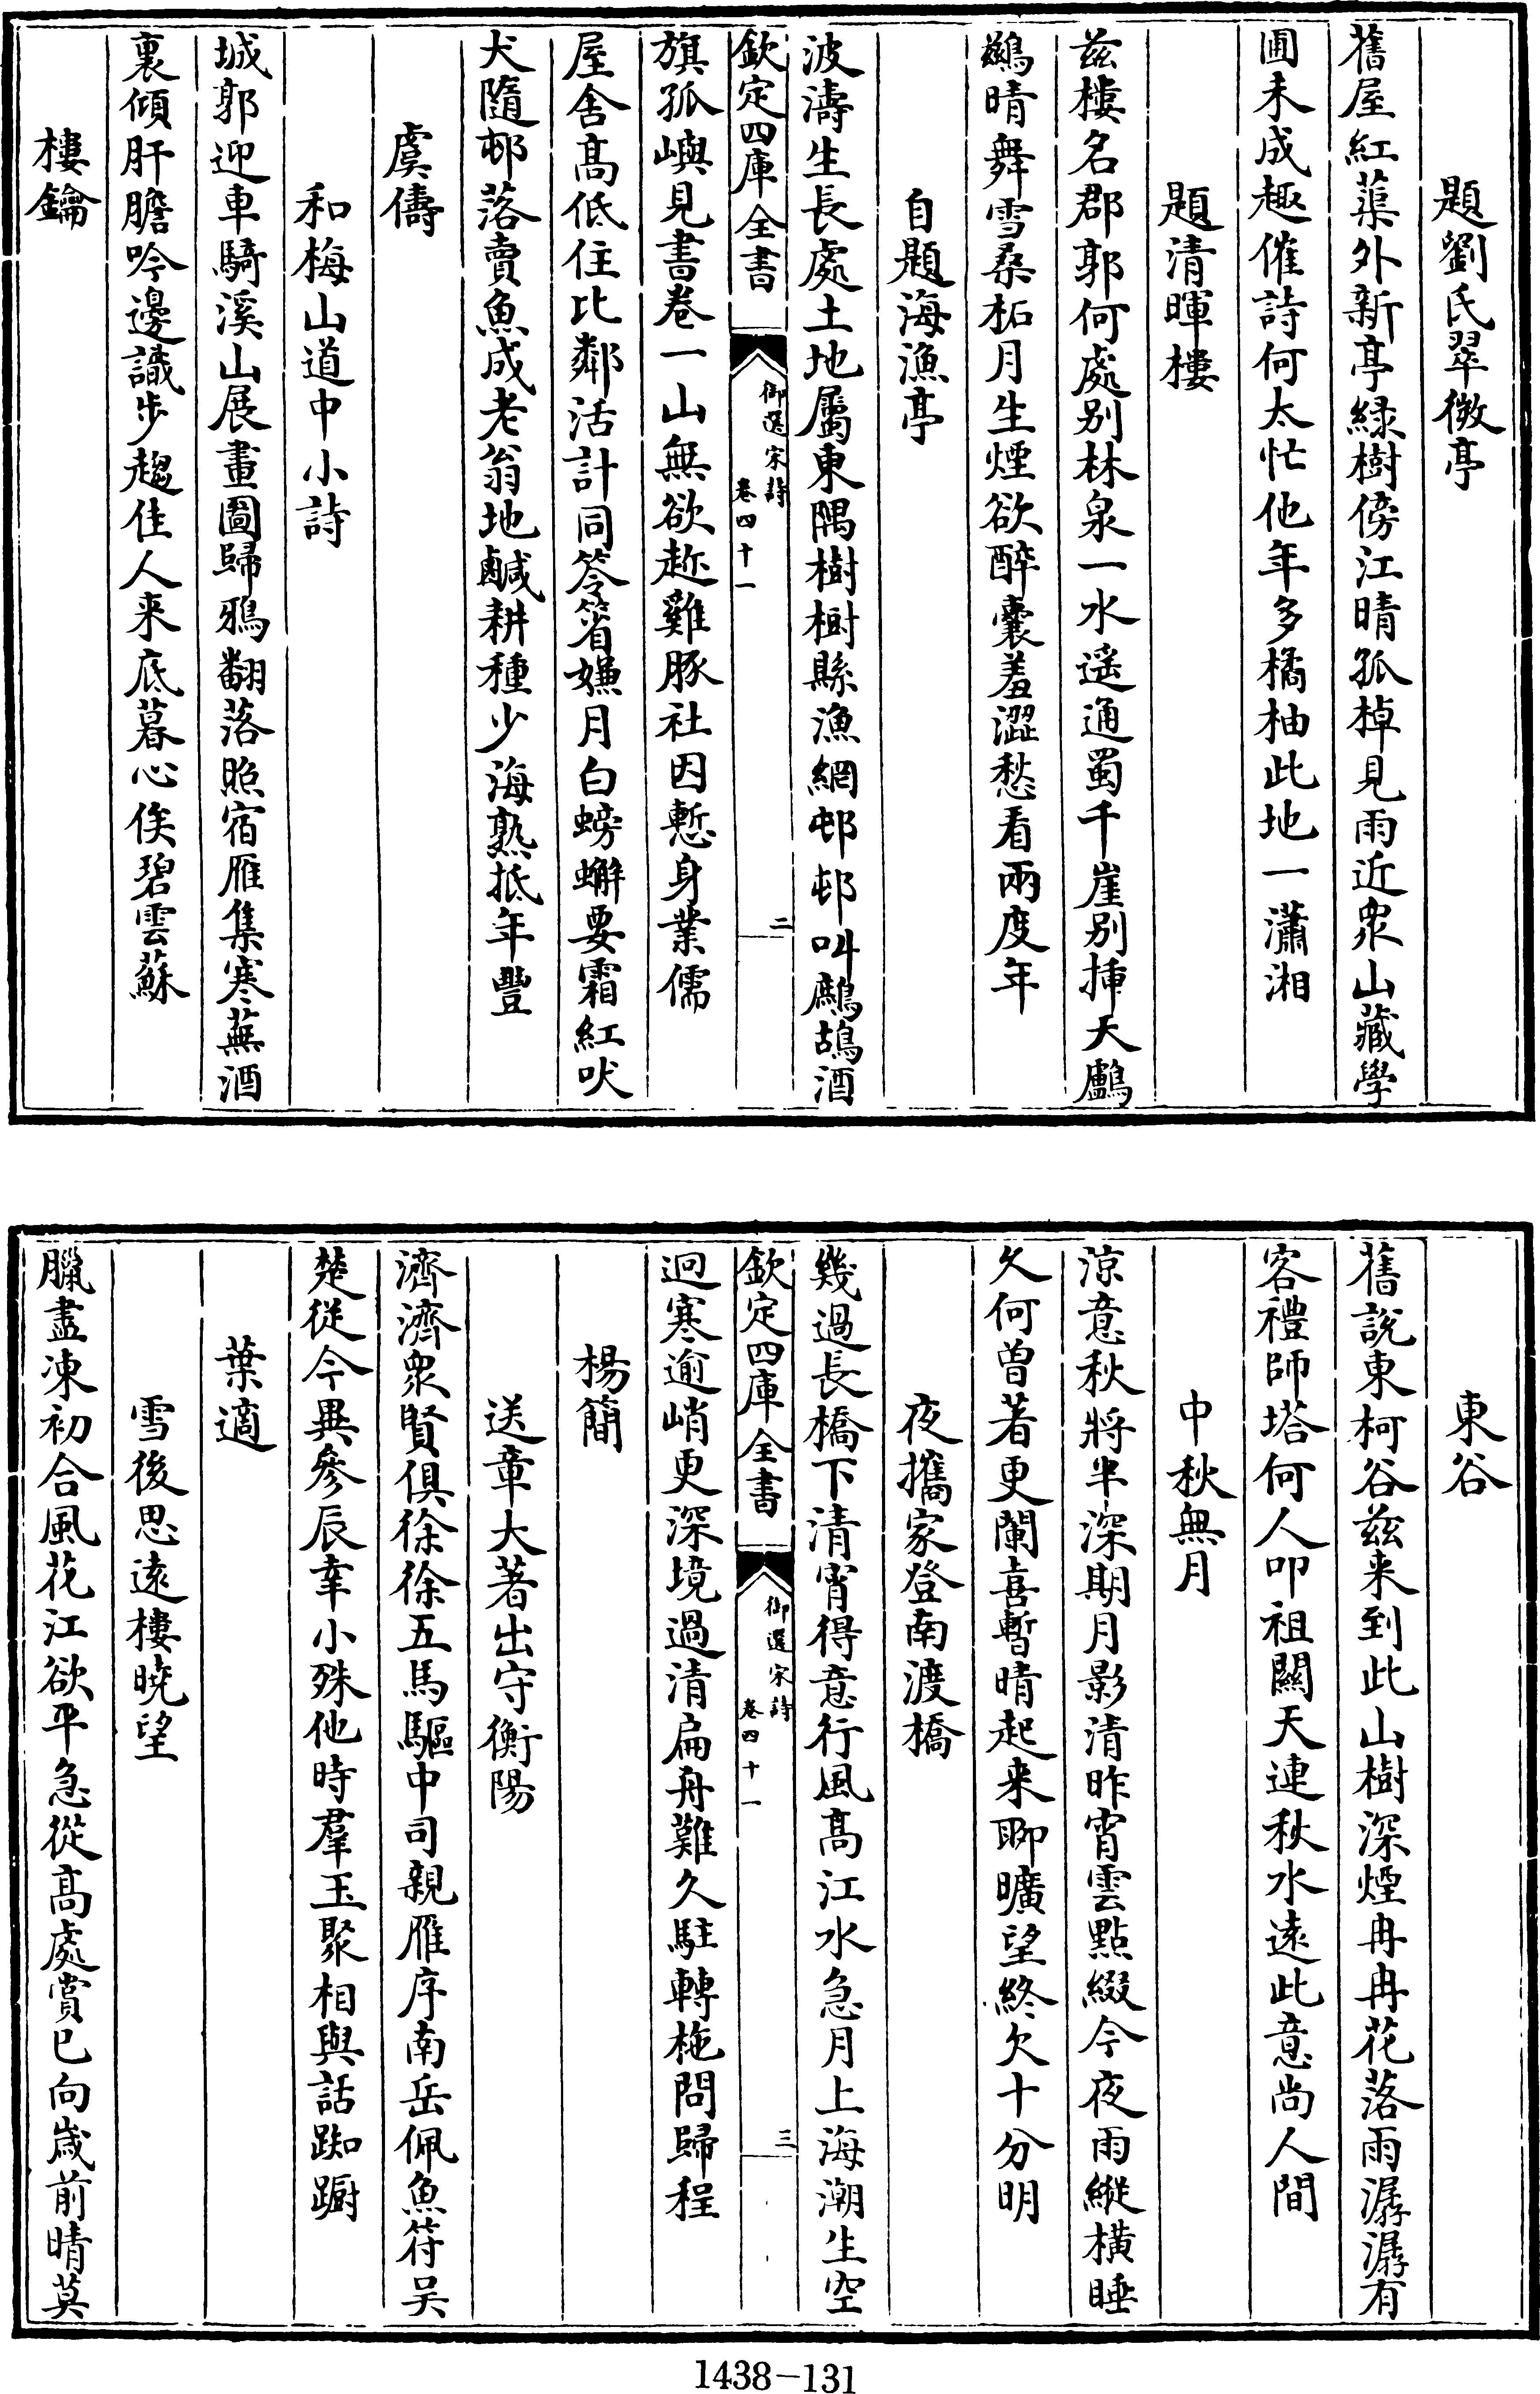 題劉氏翠微亭
舊屋紅蕖外新亭緑樹傍江晴孤棹見雨近衆山藏學
圃未成趣催詩何太忙他年多橘柚此地一瀟湘
題清暉樓
兹樓名郡郭何處别林泉一水遥通蜀千崖别揷天鸕
鷀晴舞雪桑柘月生煙欲醉囊羞澀愁看兩度年
自題海漁亭
波濤生長處土地屬東隅樹樹縣漁網邨邨叫鷓鴣酒
欽定四庫全書
御選宋詩
卷四十一
二
旗孤嶼見書卷一山無欲趂雞豚社因慙身業儒
屋舍髙低住比鄰活計同笭箵嫌月白螃蠏要霜紅吠
犬隨邨落賣魚成老翁地鹹耕種少海熟抵年豐
虞儔
和梅山道中小詩
城郭迎車騎溪山展畫圖歸鴉翻落照宿雁集寒蕪酒
裏傾肝膽吟邊識步趨佳人来底暮心俟碧雲蘇
樓鑰
東谷
舊説東柯谷兹来到此山樹深煙冉冉花落雨潺潺有
客禮師塔何人叩祖關天連秋水逺此意尚人間
中秋無月
涼意秋將半深期月影清昨宵雲點綴今夜雨縱横睡
久何曽著更闌喜暫晴起来聊曠望終欠十分明
夜攜家登南渡橋
幾過長橋下清宵得意行風髙江水急月上海潮生空
欽定四庫全書
御選宋詩
卷四十一
三
迥寒逾峭更深境過清扁舟難久駐轉柂問歸程
楊簡
送章大著出守衡陽
濟濟衆賢俱徐徐五馬驅中司親雁序南岳佩魚符吴
楚從今異參辰幸小殊他時羣玉聚相與話踟蹰
葉適
雪後思逺樓曉望
臘盡凍初合風花江欲平急從髙處賞已向嵗前晴莫
1438-131